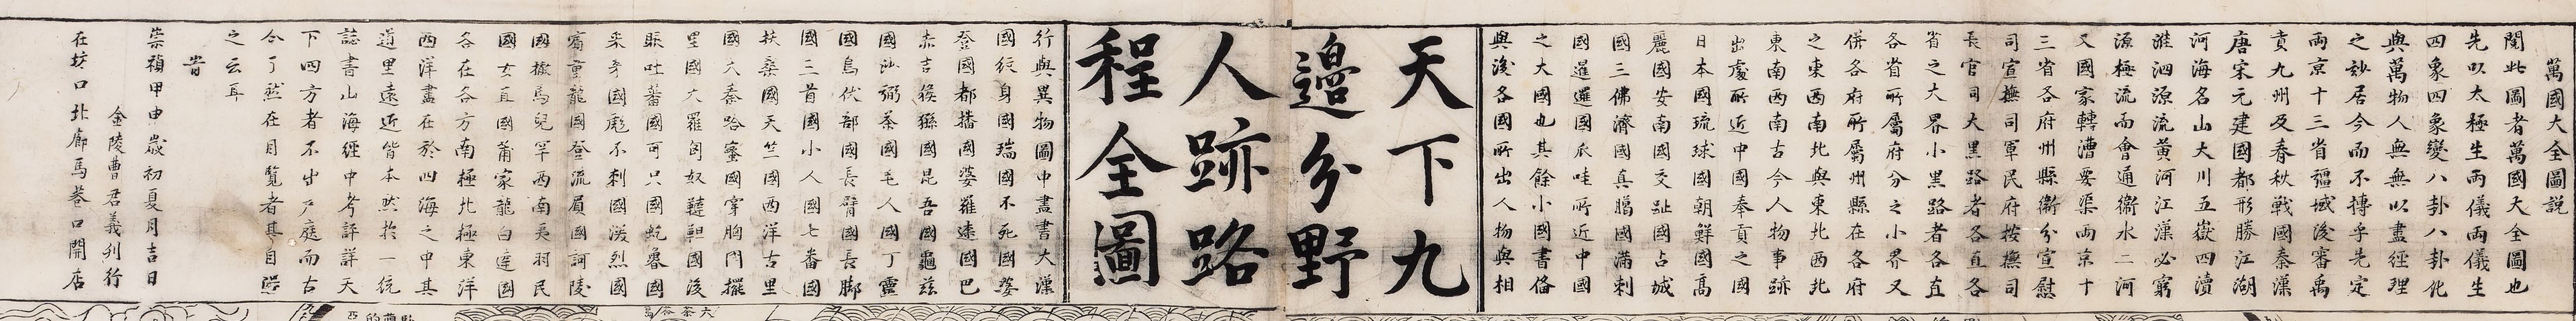 萬國大全圖説
閱此圖者萬國大全圖也
先以太極生兩儀兩儀生
四象四象變八卦八卦化
與萬物人無無以盡經理
之妙居今而不摶乎先定
兩京十三省疆域後審禹
貢九州及春秋戰國秦漢
唐宋元建國都形勝江湖
河海名山大川五嶽四瀆
淮泗源流黄河江漢必窮
源極流而會通衞水二河
又國家轉漕要渠兩京十
三省各府州縣衞分宣慰
司宣撫司軍民府按撫司
長官司大黑路者各直各
省之大界小黑路者各直
各省所屬府分之小界又
併各府所屬州縣在各府
之東西南北與東北西北
東南西南古今人物事跡
出處所近中國奉貢之國
日本國琉球國朝鮮國高
麗國安南國交趾國占城
國三佛濟國真臘國滿剌
國暹邏國爪哇所近中國
之大國也其餘小國書俻
與後各國所出人物與相
天下九
邊分野
人跡路
程全圖
行與異物圖中盡書大漢
國後身國瑞國不死國婆
登國都播國婆羅遠國巴
赤吉猴猻國昆吾國龜茲
國沙弼茶國毛人國丁靈
國烏伏部國長臂國長脚
國三首國小人國七番國
扶桑國天竺國西洋古里
國大秦哈蜜國穿胸門擺
里國大羅匈奴韃靼國後
眼吐蕃國可只國乾魯國
采牙國彪不剌國潑烈國
龍國登流眉國訶陵
國 馬兒罕西南夷羽民
國女直國蒲家龍白達國
各在各方南極北極東洋
西洋盡在於四海之中其
道里遠近皆本然於一統
誌書山海經中考評詳天
下四方者不出户庭而古
今了然在目覽者其自照
之云耳
旹
崇禎甲申歲初夏月吉日
金陵曹君義刋行
在坊口北廊馬巷口開店